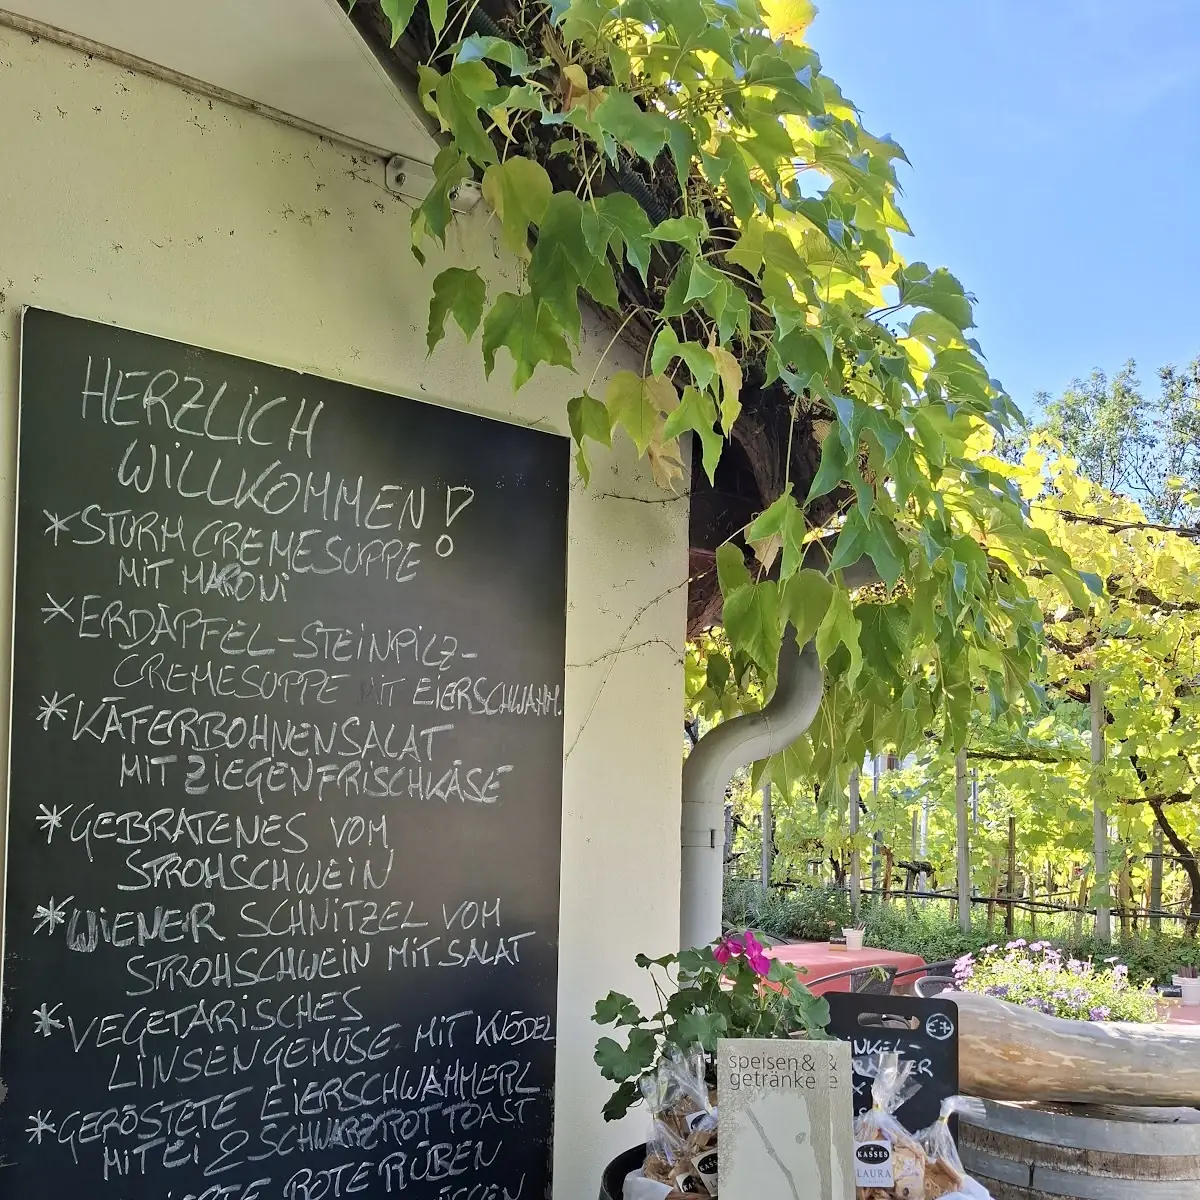 HERZLICH
WILLKOMMEN!
* STURMCREMESUPPE
MIT MARONI
* ERDÄPFEL-STEINPILZ-
CREMESUPPE MIT EIERSCHWAMM.
* KÄFERBOHNENSALAT
MIT ZIEGENFRISCHKÄSE
* GEBRATENES VOM
STROHSCHWEIN
* WIENER SCHNITZEL VOM
STROHSCHWEIN MIT SALAT
* VEGETARISCHES
LINSENGEMÜSE MIT KNÖDEL
* GERÖSTETE EIERSCHWAMMERL
MIT EI & SCHWARZROTTOAST
ROTE RÜBEN
speisen& &
getränke e
NKEL-
KASSES
LAURA